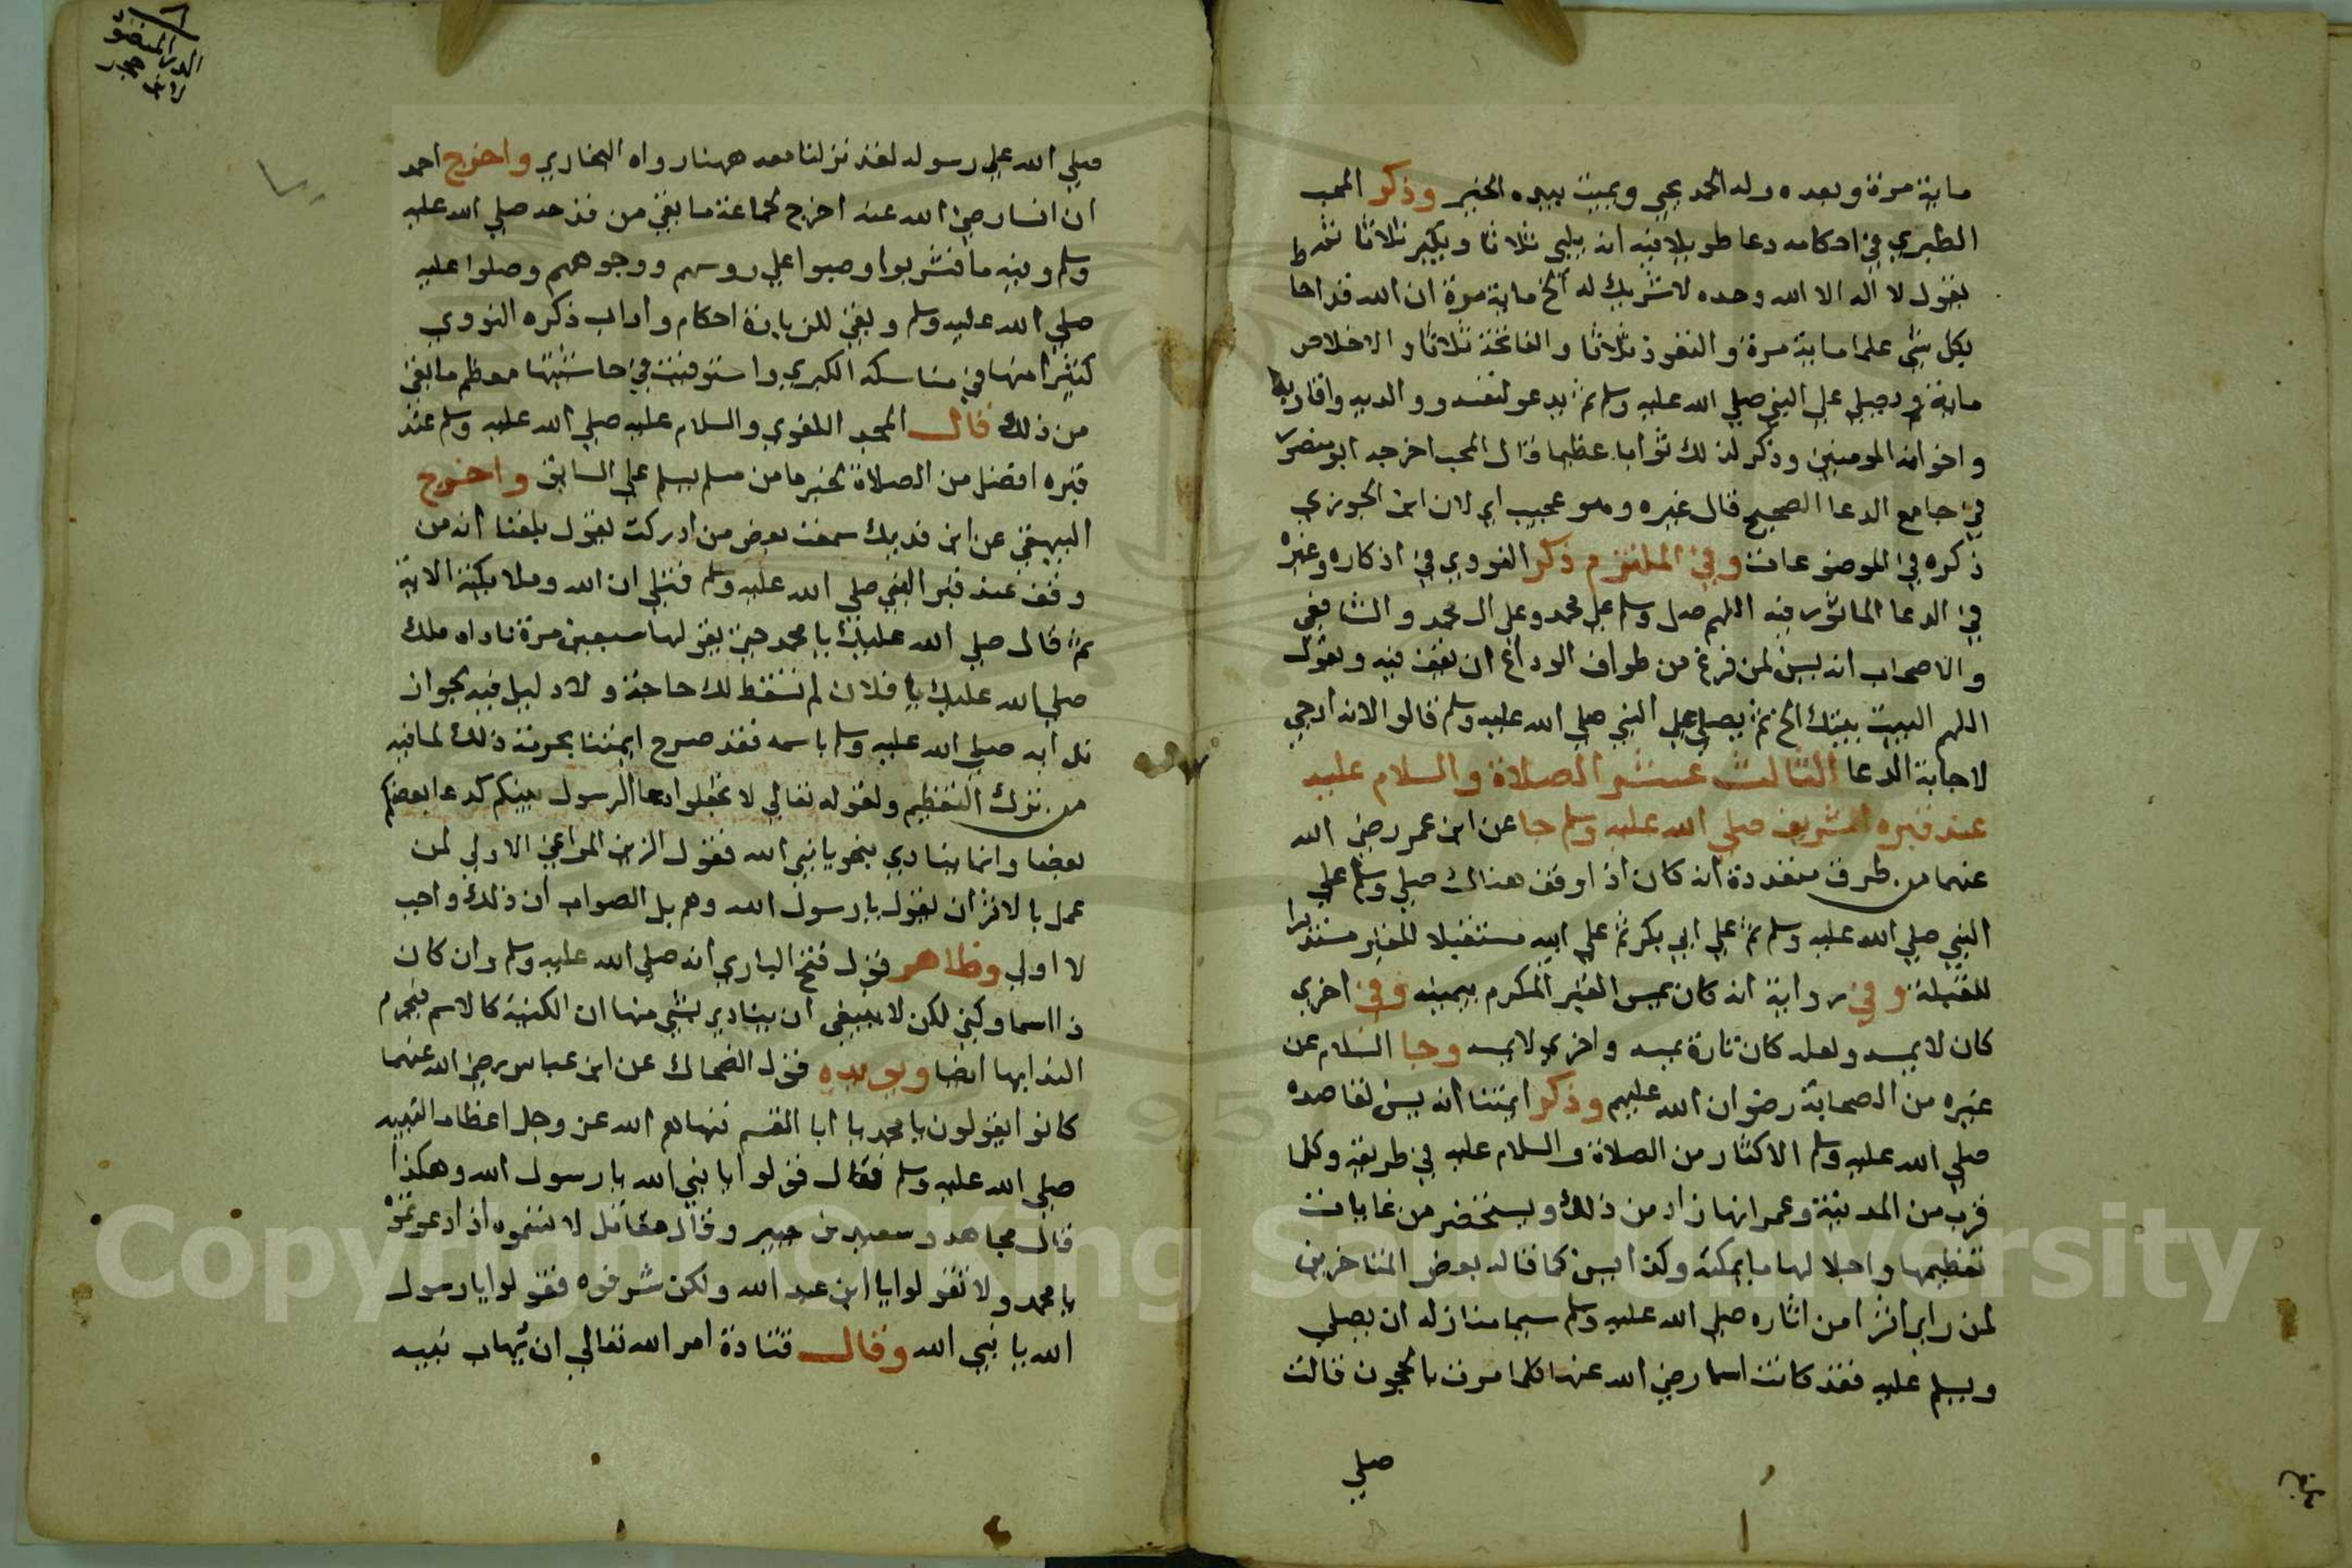 ماية مرة وبعده وله الحمد يحيي ويميت بيده الخير وذكر المحب
الطبري في احكامه دعا طويلا فيه انه يلبي ثلاثا ويكبر ثلاثا ثم
يقول لا اله الا الله وحده لا شريك له الخ ماية مرة ان الله قد احا
بكل شي علما ماية مرة والتعوذ ثلاثا والفاتحة ثلاثا والاخلاص
ماية ويصلي علي النبي صلي الله عليه وسلم ثم يدعو لنفسه ووالديه واقاربه
واخوانه المومنين وذكر لذلك ثوابا عظيما قال المحب اخرجه ابو منصور
في جامع الدعا الصحيح قال غيره وهو عجيب اي لان ابن الجوزي
ذكره في الموضوعات وفي الملتزم ذكر النووي في اذكاره وغيره
في الدعا الماثور فيه اللهم صل وسلم علي محمد وعلي ال محمد والشافعي
والاصحاب انه يسن لمن فرغ من طواف الوداع ان يقف فيه ويقول
اللهم البيت بيتك الخ ثم يصلي علي النبي صلي الله عليه وسلم قالوا لانه ارجي
لاجابة الدعا الثالث عشر الصلاة والسلام عليه
عند قبره الشريف صلي الله عليه وسلم جا عن ابن عمر رضي الله
عنهما من طرق متعددة انه كان اذا وقف هناك صلي وسلم علي
النبي صلي الله عليه وسلم ثم علي ابي بكر ثم علي ابيه مستقبلا للقبر مستدبرا
للقبلة وفي رواية انه كان يمس القبر المكرم بيمينه وفي اخري
كان لا يمسه ولعله كان تارة يمسه واخري لا يمسه وجا السلام عن
غيره من الصحابة رضوان الله عليهم وذكر ايمتنا انه يسن لقاصده
صلي الله عليه وسلم الاكثار من الصلاة والسلام عليه في طريقه وكلما
قرب من المدينة وعمرانها زاد من ذلك ويستحضر من غايات
تعظيمها واجلالها ما يمكنه وكذا يسن كما قاله بعض المتاخرين
لمن راي اثرا من اثاره صلي الله عليه وسلم سيما منازله ان يصلي
ويسلم عليه فقد كانت اسما رضي الله عنها كلما مرت بالحجون قالت
صلي
الدر المنضود
لابن حجر
صلي الله علي رسوله لقد نزلنا معه ههنا رواه البخاري واخرج احمد
ان انسا رضي الله عنه اخرج لجماعة ما بقي من قدحه صلي الله عليه
وسلم وفيه ما فشربوا وصبوا علي روسهم ووجوههم وصلوا عليه
صلي الله عليه وسلم وبقي للزيارة احكام واداب ذكره النووي
كثيرا منها في مناسكه الكبري واستوفيت في حاشيتها معظم ما بقي
من ذلك قال المجد اللغوي والسلام عليه صلي الله عليه وسلم عند
قبره افضل من الصلاة لخبر ما من مسلم يسلم علي السابق واخرج
البيهقي عن ابن فديك سمعت بعض من ادركت يقول بلغنا انه من
وقف عند قبر النبي صلي الله عليه وسلم فتلي ان الله وملايكته الاية
ثم قال صلي الله عليك يا محمد حين يقولها سبعين مرة ناداه ملك
صلي الله عليك يا فلان لم تسقط لك حاجة ولا دليل فيه لجواز
ندايه صلي الله عليه وسلم باسمه فقد صرح ايمتنا بحرمة ذلك لما فيه
من ترك التعظيم ولقوله تعالي لا تجعلوا دعا الرسول بينكم كدعا بعضكم
بعضا وانما ينادي بنحو يا نبي الله فقول الزين المراغي الاولي لمن
عمل بالاثر ان يقول يا رسول الله وهم بل الصواب ان ذلك واجب
لا اولي وظاهر قول فتح الباري انه صلي الله عليه وسلم وان كان
ذا اسما وكني لكن لا ينبغي ان ينادي بشي منها ان الكنية كالاسم فيحرم
الندا بها ايضا ويويده قول الضحاك عن ابن عباس رضي الله عنهما
كانوا يقولون يا محمد يا ابا القسم فنهاهم الله عز وجل اعظاما لنبيه
صلي الله عليه وسلم فقال قولوا يا نبي الله يا رسول الله وهكذا
قال مجاهد وسعيد بن جبير وقال مقاتل لا تسموه اذا دعوتموه
يا محمد ولا تقولوا يا ابن عبد الله ولكن شرفوه فقولوا يا رسول
الله يا نبي الله وقال قتادة امر الله تعالي ان يهاب نبيه
Copyright © King Saud University